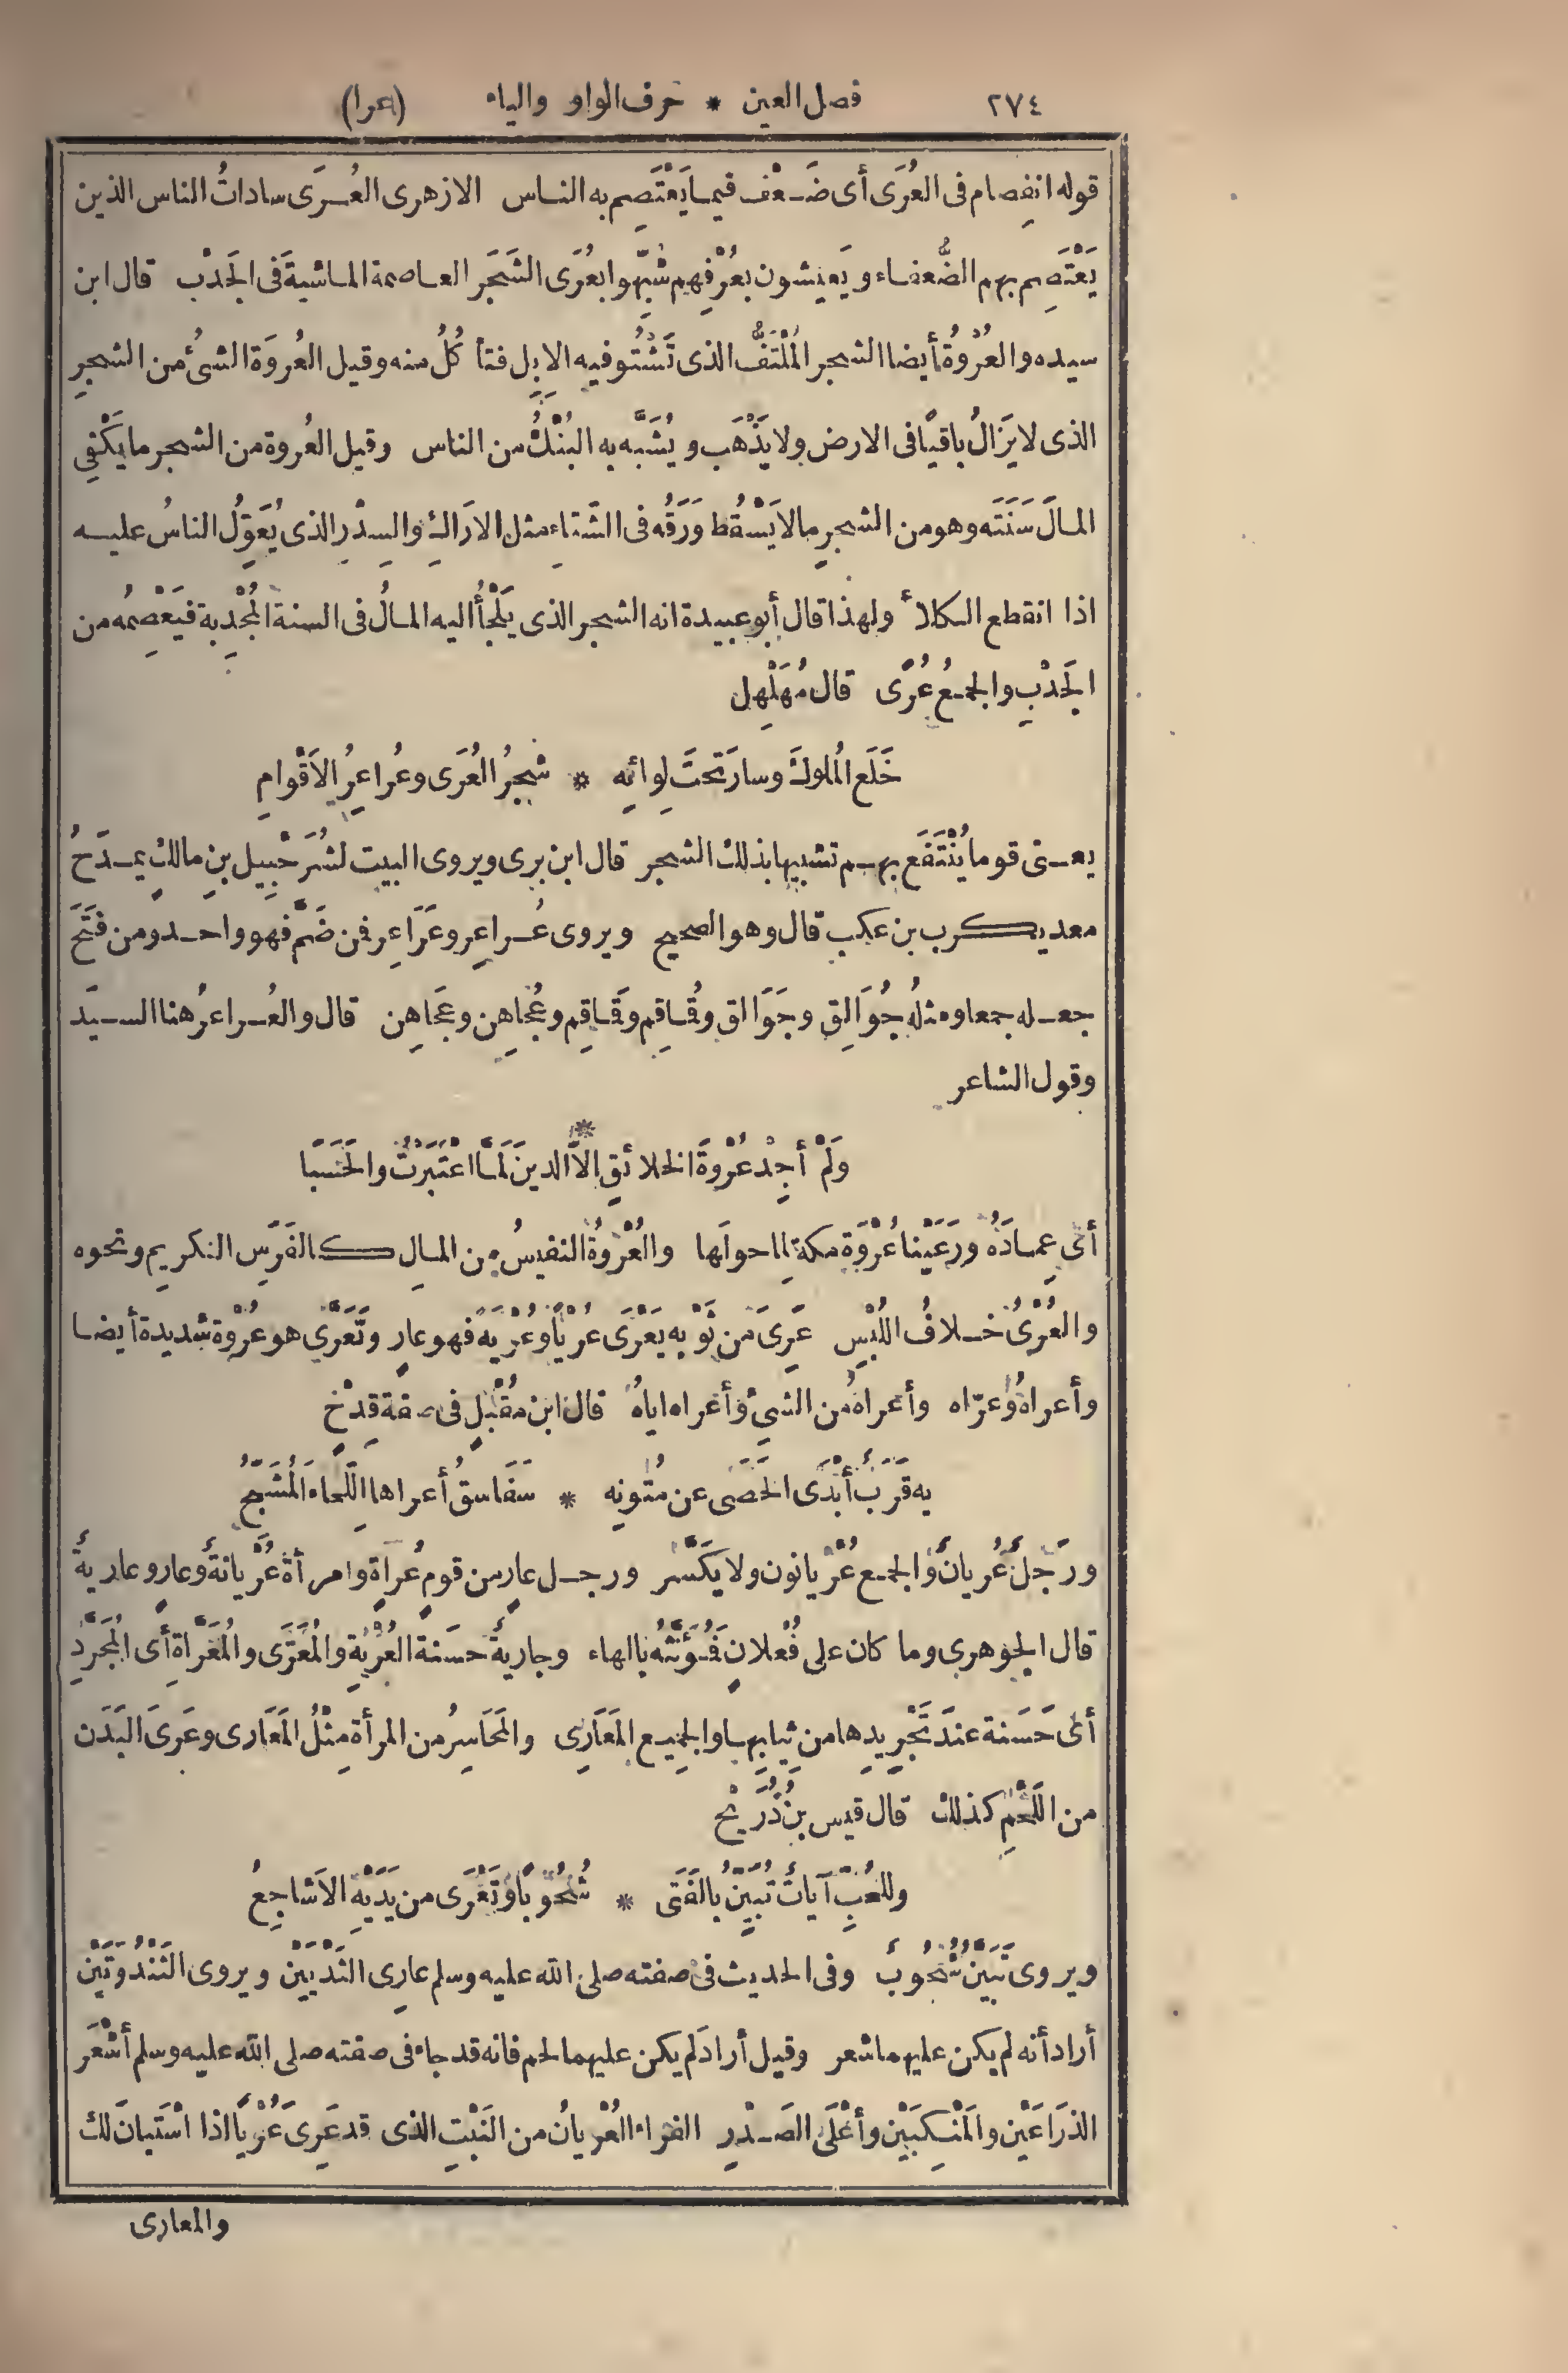 ٢٧٤ فصل العين * حرف الواو والياء (عرا)
قوله انفِصام فى العُرَى أى ضَعْف فيما يَعْتَصِم به الناس الازهرى العُرَى ساداتُ الناس الذين
يَعْتَصِم بهم الضُّعفاء ويَعيشون بعُرْفِهم شُبِّهوا بعُرَى الشَّجَر العاصمة الماشيةَ فى الجَدْب قال ابن
سيده والعُرْوةُ أيضا الشجر المُلْتَفُّ الذى تَشْتُو فيه الابِل فتأكُلُ منه وقيل العُروَة الشىُٔ من الشجرِ
الذى لايَزالُ باقيًا فى الارض ولايَذْهَب ويُشَبَّه به البُنْكُ من الناس وقيل العُروة من الشجر ما يَكْفِى
المالَ سَنَتَه وهو من الشجرِ مالايَسْقُط وَرَقُه فى الشّتاءِ مثل الارَاكِ والسِدْرِ الذى يُعَوِّلُ الناسُ عليه
اذا انقطع الكلأ ولهذا قال أبو عبيدة انه الشجر الذى يَلْجَأُ اليه المالُ فى السنة المُجْدِبة فيَعْصِمُه من
الجَدْبِ والجمعُ عُرًى قال مُهَلْهِل
خَلَع المُلوكَ وسارَ تحتَ لِوائِه * شجرُ العُرَى وعُراعِرُ الاَقْوامِ
يعنى قوما يُنْتَفَع بهم تشبيها بذلك الشجر قال ابن برى ويروى البيت لشُرَحْبِيل بنِ مالكٍ يمدَحُ
معديكرب بن عكب قال وهو الصحيح ويروى عُراعِر وعَرَاعِر فمن ضَمَّ فهو واحد ومن فَتَحَ
جعله جمعا ومثلُه جُوَالِق وجَوَالق وقُماقِم وقَماقِم وعُجاهِن وعَجَاهِن قال والعُراعرُ هنا السيّد
وقول الشاعر
*
ولَمْ أَجِدْ عُرْوةَ الخلائقِ الاَّ الدينَ لَمَّا اعْتَبَرْتُ والحَسَبَا
أى عِمادَهُ ورَعَيْنا عُرْوَة مكةَ لِما حولَها والعُرْوةُ النفيسُ من المالِ كالفَرَسِ الكريمِ ونحوه
والعُرْىُ خلافُ اللُّبْسِ عَرِىَ من ثَوْبه يَعْرَى عُرْيًا وعُرْيَةً فهو عارٍ وتَعَرَّى هو عُرْوة شديدة أيضا
وأعراهُ وعرّاه وأعراهُ من الشىٔ وأعراه اياهُ قال ابن مُقْبلٍ فى صفة قِدْحٍ
به قَرَبٌ أَبْدَى الحَصَى عن مُتونِه * سَفَاسقُ أعراها اللِّحاءُ المُشَبِّحُ
ورَجلٌ عُريانٌ والجمع عُرْيانون ولايكَسَّر ورجل عارٍ من قومٍ عُراةٍ وامرأة عُرْيانةٌ وعارٍ وعاريةٌ
قال الجوهرى وما كان على فُعْلانٍ فَمُؤَنَّثُه بالهاء وجاريةٌ حسَنة العُرْيةِ والمُعَرَّى والمُعَرّاةِ أى المُجَرَّدِ
أى حَسَنة عندَ تَجْرِيدِها من ثِيابِها والجميع المَعَارِى والمَحَاسِرُ من المرأة مِثْلُ المَعَارى وعَرِىَ البَدَن
من اللَّحْمِ كذلك قال قيس بن ذُرَيْح
وللحُبِّ آياتٌ تُبَيّنُ بالفَتَى * شُحُوبًا وتَعْرَى من يَدَيْهِ الاَشاجِعُ
ويروى تَبَيَّنَ شُحُوبٌ وفى الحديث فى صفته صلى الله عليه وسلم عارِى الثَّدْيَيْنِ ويروى الثَّنْدُوَتَيْنِ
أراد أنه لم يكن عليهما شعر وقيل أرادَ لم يكن عليهما لحم فانه قد جاء فى صفته صلى الله عليه وسلم أَشْعَر
الذرَاعَيْن والمَنْكِبَيْن وأعْلَى الصَدْرِ الفراء العُرْيانُ من النَبْتِ الذى قد عَرِىَ عُرْيًا اذا اسْتَبانَ لك
والمعارى